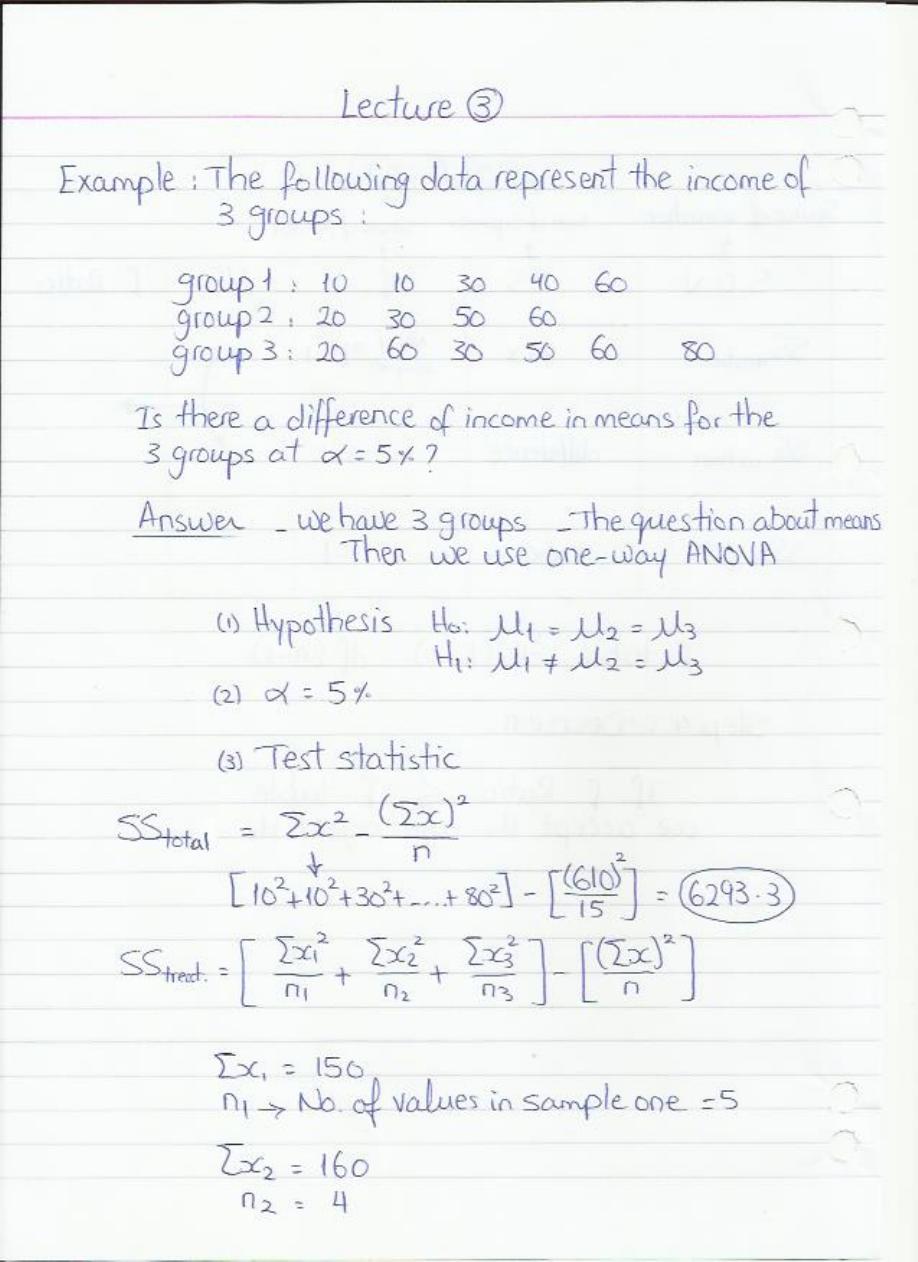 Lecture ③
Example : The following data represent the income of
3 groups :
group 1 : 10 10 30 40 60
group 2 : 20 30 50 60
group 3 : 20 60 30 50 60 80
Is there a difference of income in means for the
3 groups at α = 5% ?
Answer - we have 3 groups - The question about means
Then we use one-way ANOVA
(1) Hypothesis H₀: μ₁ = μ₂ = μ₃
H₁: μ₁ ≠ μ₂ = μ₃
(2) α = 5%
(3) Test statistic
SS_total = Σx² - (Σx)²/n
↓
[10²+10²+30²+....+80²] - [(610)²/15] = 6293.3
SS_treat. = [Σx₁²/n₁ + Σx₂²/n₂ + Σx₃²/n₃] - [(Σx)²/n]
Σx₁ = 150
n₁ → No. of values in sample one = 5
Σx₂ = 160
n₂ = 4